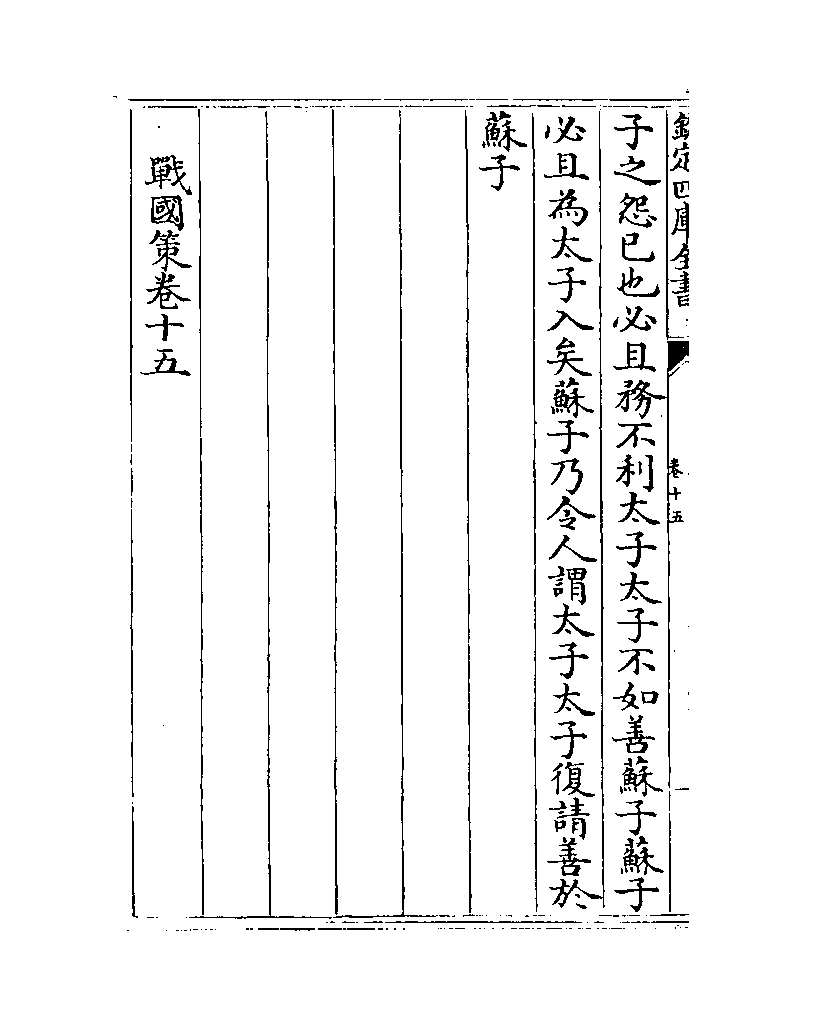 欽定四庫全書
卷十五
子之怨已也必且務不利太子太子不如善蘇子蘇子
必且為太子入矣蘇子乃令人謂太子太子復請善於
蘇子
戰國策卷十五